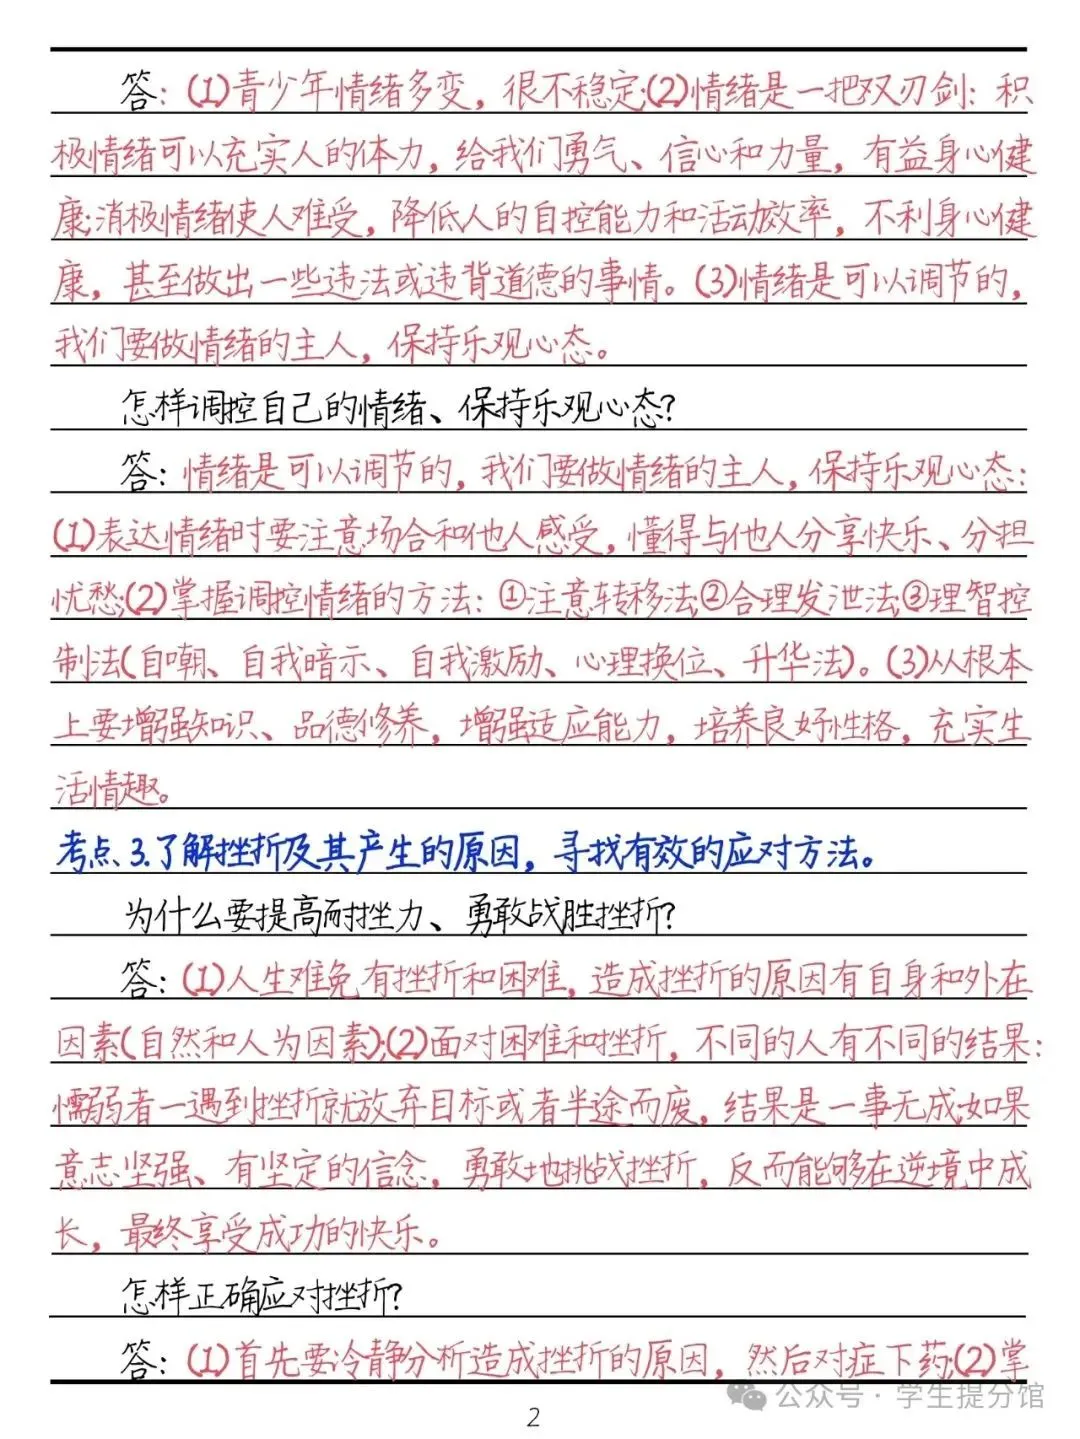 答：(1)青少年情绪多变，很不稳定;(2)情绪是一把双刃剑：积
极情绪可以充实人的体力，给我们勇气、信心和力量，有益身心健
康;消极情绪使人难受，降低人的自控能力和活动效率，不利身心健
康，甚至做出一些违法或违背道德的事情。(3)情绪是可以调节的，
我们要做情绪的主人，保持乐观心态。
怎样调控自己的情绪、保持乐观心态?
答：情绪是可以调节的，我们要做情绪的主人，保持乐观心态：
(1)表达情绪时要注意场合和他人感受，懂得与他人分享快乐、分担
忧愁;(2)掌握调控情绪的方法：①注意转移法;②合理发泄法;③理智控
制法(自嘲、自我暗示、自我激励、心理换位、升华法)。(3)从根本
上要增强知识、品德修养，增强适应能力，培养良好性格，充实生
活情趣。
考点、3.了解挫折及其产生的原因，寻找有效的应对方法。
为什么要提高耐挫力、勇敢战胜挫折?
答：(1)人生难免有挫折和困难，造成挫折的原因有自身和外在
因素(自然和人为因素);(2)面对困难和挫折，不同的人有不同的结果：
懦弱者一遇到挫折就放弃目标或者半途而废，结果是一事无成;如果
意志坚强、有坚定的信念，勇敢地挑战挫折，反而能够在逆境中成
长，最终享受成功的快乐。
怎样正确应对挫折?
答：(1)首先要冷静分析造成挫折的原因，然后对症下药;(2)掌
公众号·学生提分馆
2